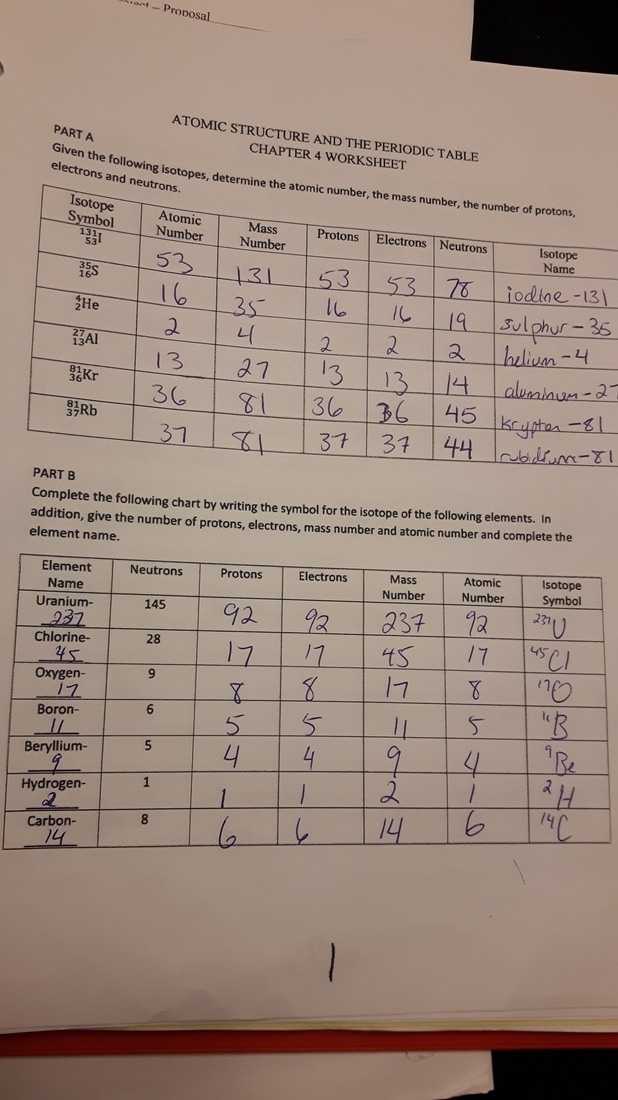 – Proposal
ATOMIC STRUCTURE AND THE PERIODIC TABLE
CHAPTER 4 WORKSHEET
PART A
Given the following isotopes, determine the atomic number, the mass number, the number of protons,
electrons and neutrons.
Isotope Symbol Atomic Number Mass Number Protons Electrons Neutrons Isotope Name
¹³¹₅₃I 53 131 53 53 78 iodine-131
³⁵₁₆S 16 35 16 16 19 sulphur-35
⁴₂He 2 4 2 2 2 helium-4
²⁷₁₃Al 13 27 13 13 14 aluminum-27
⁸¹₃₆Kr 36 81 36 36 45 krypton-81
⁸¹₃₇Rb 37 81 37 37 44 rubidium-81
PART B
Complete the following chart by writing the symbol for the isotope of the following elements. In
addition, give the number of protons, electrons, mass number and atomic number and complete the
element name.
Element Name Neutrons Protons Electrons Mass Number Atomic Number Isotope Symbol
Uranium-237 145 92 92 237 92 ²³⁷U
Chlorine-45 28 17 17 45 17 ⁴⁵Cl
Oxygen-17 9 8 8 17 8 ¹⁷O
Boron-11 6 5 5 11 5 ¹¹B
Beryllium-9 5 4 4 9 4 ⁹Be
Hydrogen-2 1 1 1 2 1 ²H
Carbon-14 8 6 6 14 6 ¹⁴C
1